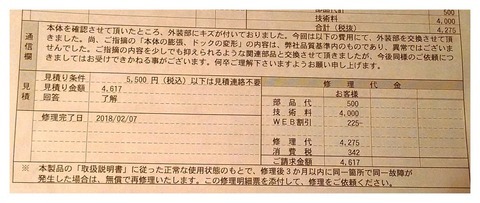 部品代 500
技術料 4,000
合計(税抜) 4,275
通信欄
本体を確認させて頂いたところ、外装部にキズが付いておりました。今回は以下の費用にて、外装部を交換させて頂き
ました。尚、ご指摘の「本体の膨張、ドックの変形」の内容は、弊社品質基準内のものであり、異常ではございま
せんでした。ご指摘の内容を少しでも抑えられるような関連部品と交換させて頂きましたが、今後同様のご依頼につ
きましてはお受けできかねる事がございます。何卒ご理解下さいますようお願い申し上げます。
見積
見積り条件 5,500 円(税込)以下は見積連絡不要
見積り金額 4,617
回答 了解
修理完了日 2018/02/07
修理代金
お客様
部品代 500
技術料 4,000
WEB割引 225-
修理代 4,275
消費税 342
ご請求金額 4,617
※ 本製品の「取扱説明書」に従った正常な使用状態のもとで、修理後3か月以内に同一箇所で同一故障が
発生した場合は、無償で再修理いたします。この修理明細票を添付して、修理をご依頼ください。